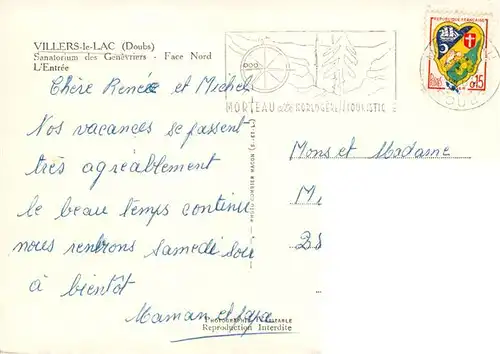 VILLERS-le-LAC (Doubs)
Sanatorium des Genêvriers - Face Nord
L'Entrée
Chère Renée et Michel
Nos vacances se passent
très agréablement
le beau temps continu
nous rentrons samedi soir
à bientôt
Maman et papa
Reproduction Interdite
PHOTO-COMBIER MACON (S.-et-L.)
MORTEAU
RÉPUBLIQUE FRANÇAISE
0,15
Mons et Madame
M